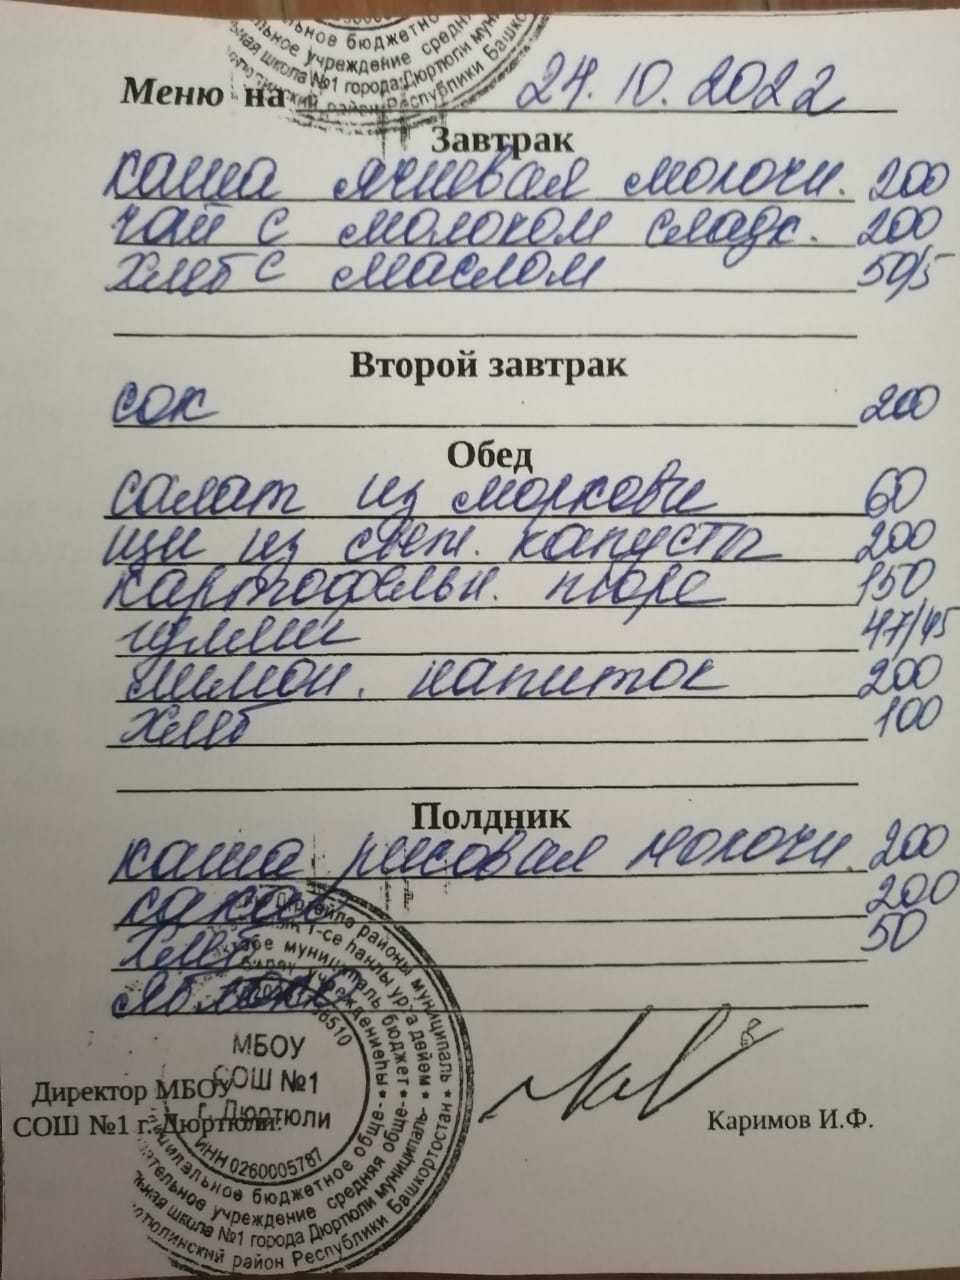 Меню на 24.10.2022
Завтрак
каша ячневая молочн. 200
чай с молоком сладк. 200
хлеб с маслом 50/5
Второй завтрак
сок 200
Обед
салат из моркови 60
щи из свеж. капусты 200
картофельн. пюре 150
гуляш 47/45
лимон. напиток 200
хлеб 100
Полдник
каша рисовая молочн. 200
какао 200
хлеб 50
яблоко
МБОУ
СОШ №1
г. Дюртюли
ИНН 0260005787
Директор МБОУ
СОШ №1 г. Дюртюли:
Каримов И.Ф.